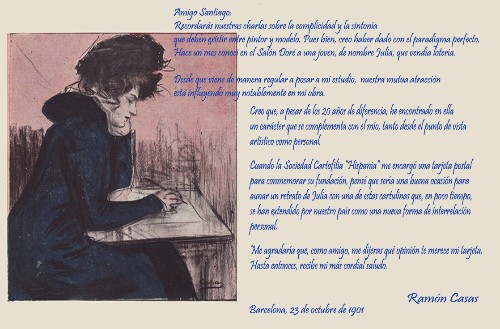 Amigo Santiago:
Recordarás nuestras charlas sobre la complicidad y la sintonía
que deben existir entre pintor y modelo. Pues bien, creo haber dado con el paradigma perfecto.
Hace un mes conocí en el Salón Doré a una joven, de nombre Julia, que vendía lotería.
Desde que viene de manera regular a posar a mi estudio, nuestra mutua atracción
está influyendo muy notablemente en mi obra.
Creo que, a pesar de los 20 años de diferencia, he encontrado en ella
un carácter que se complementa con el mío, tanto desde el punto de vista
artístico como personal.
Cuando la Sociedad Cartófila "Hispania" me encargó una tarjeta postal
para conmemorar su fundación, pensé que sería una buena ocasión para
aunar un retrato de Julia con una de estas cartulinas que, en poco tiempo,
se han extendido por nuestro país como una nueva forma de interrelación
personal.
"Me agradaría que, como amigo, me dijeras qué opinión te merece mi tarjeta.
Hasta entonces, recibe mi más cordial saludo.
Ramón Casas
Barcelona, 23 de octubre de 1901